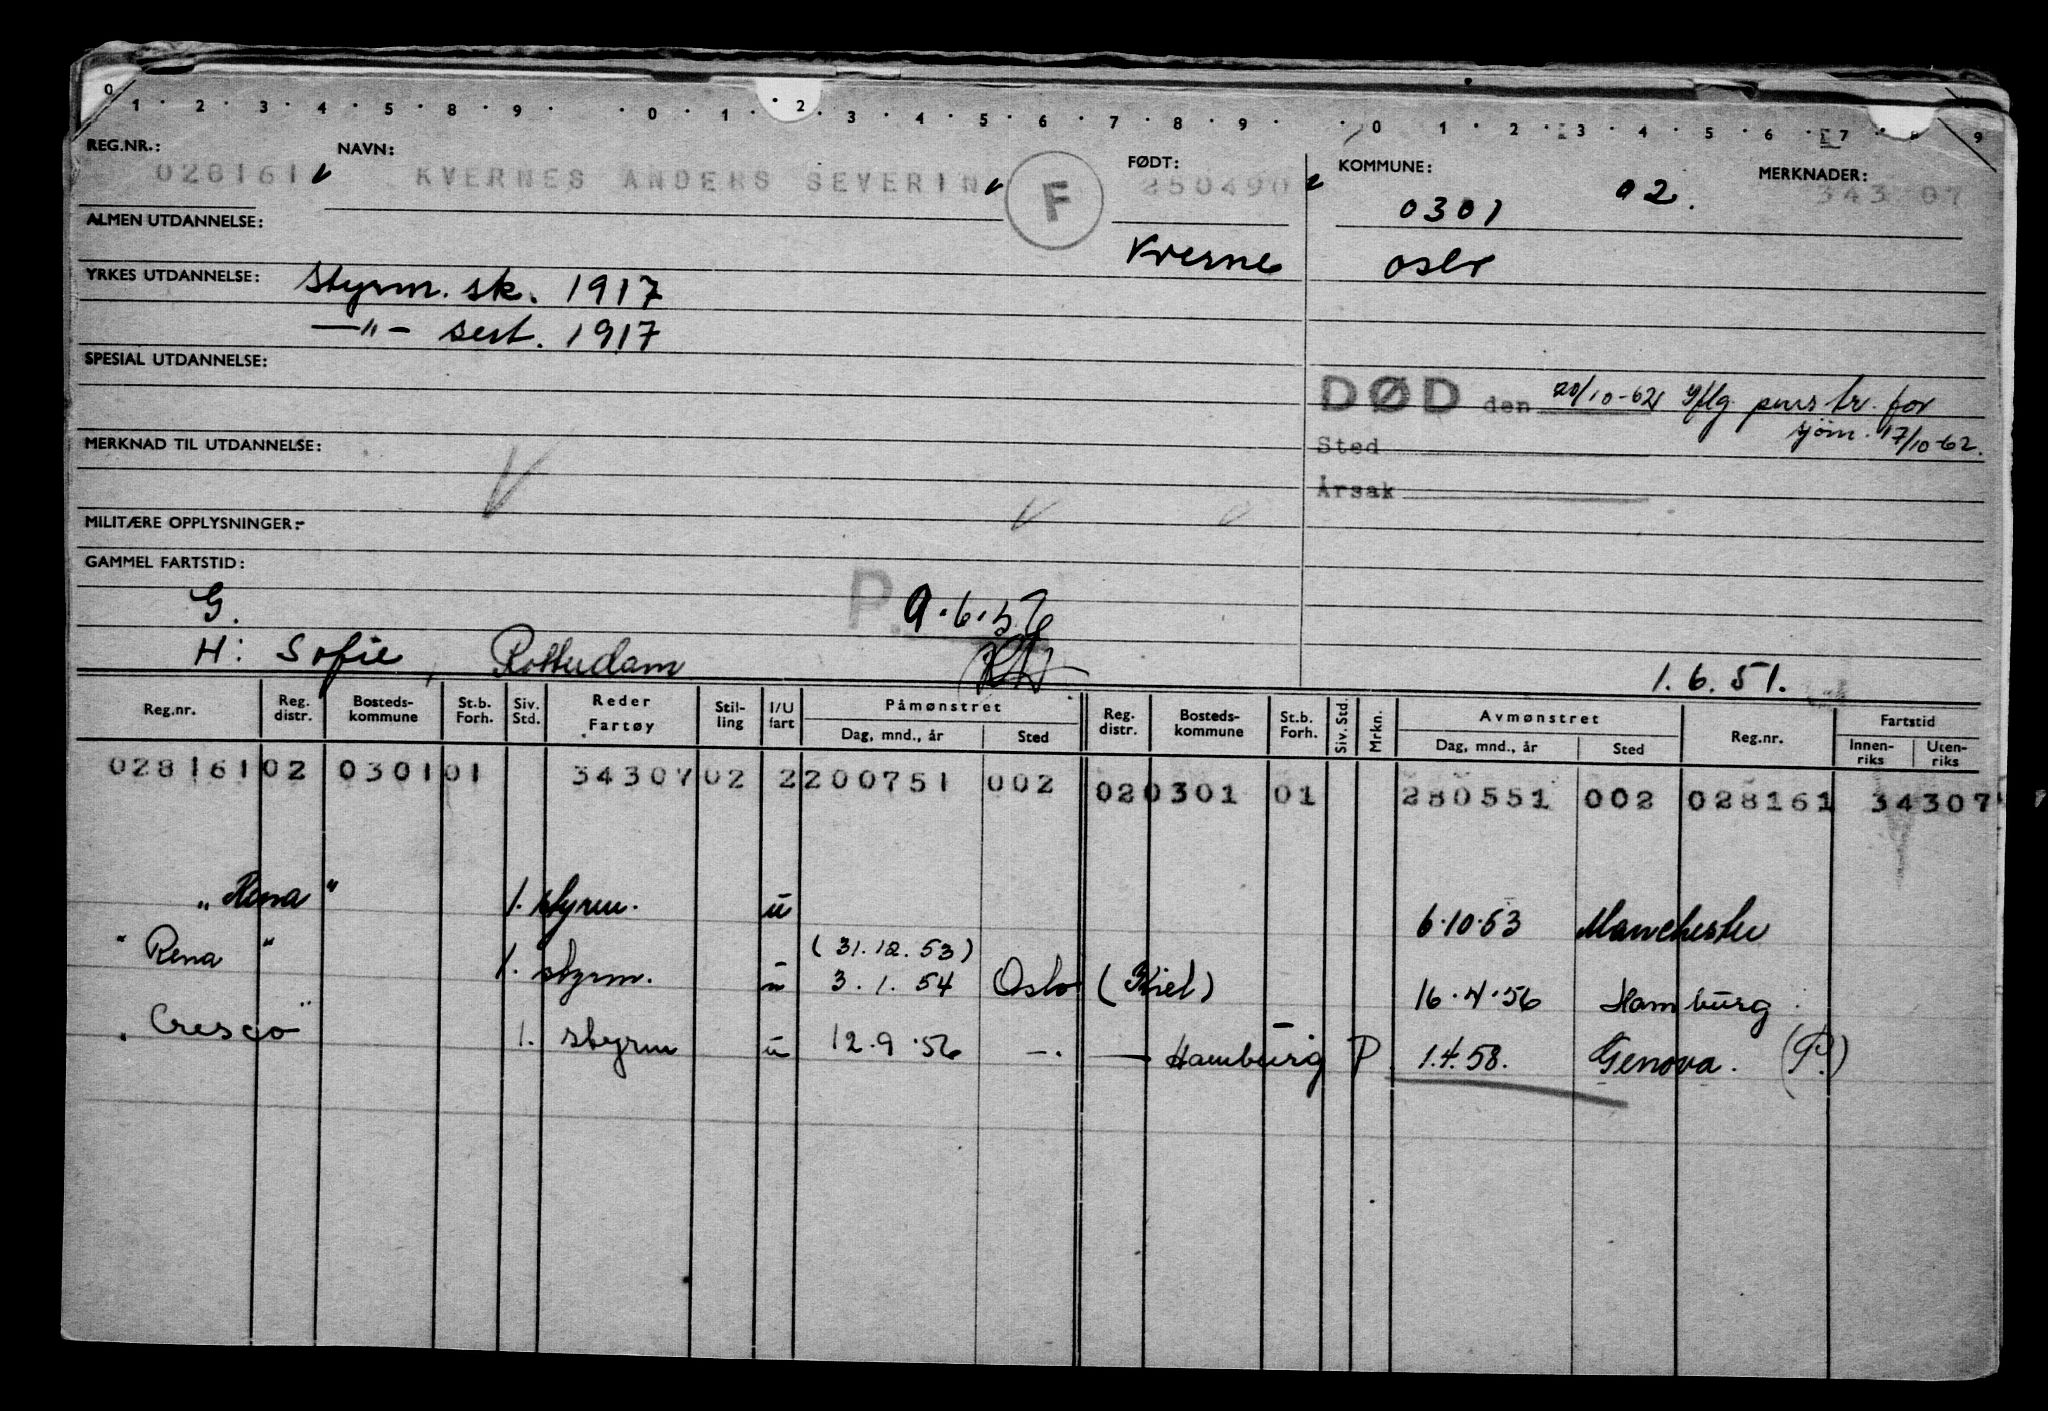 0 1 · 2 · 3 · 4 · 5 · 8 · 9 · · 0 · 1 · 2 · 3 · 4 · 5 · 6 · 7 · 8 · 9 · · 0 · 1 · 2 · 3 · 4 · 5 · 6 · 7 · 8 · 9
REG.NR.: NAVN: FØDT: KOMMUNE: MERKNADER:
028161 KVERNES ANDERS SEVERIN F 250490 0301 02. 343 07
ALMEN UTDANNELSE: Kvernes Oslo
YRKES UTDANNELSE: Styrm. sk. 1917
—"— sert. 1917
SPESIAL UTDANNELSE:
DØD den 20/10-62 iflg. pens.tr. for
sjøm. 17/10-62.
MERKNAD TIL UTDANNELSE: Sted
Årsak
MILITÆRE OPPLYSNINGER:
GAMMEL FARTSTID:
G. P. 9.6.56
H: Sofie, Rotterdam 1.6.51.
Reg.nr. Reg. distr. Bosteds- kommune St.b. Forh. Siv. Std. Reder Fartøy Stil- ling I/U fart Påmønstret Dag, mnd., år Sted Reg. distr. Bosteds- kommune St.b. Forh. Siv. Std. Mrkn. Avmønstret Dag, mnd., år Sted Reg.nr. Fartstid Innen- riks Uten- riks
028161 02 0301 01 34307 02 2 200751 002 02 0301 01 280551 002 028161 34307
"Rena" 1. styrm. u 6.10.53 Manchester
(31.12.53)
"Rena" 1. styrm. u 3.1.54 Oslo (Kiel) 16.4.56 Hamburg
"Cresco" 1. styrm u 12.9.56 —.— Hamburg P 1.4.58. Genova. (P.)